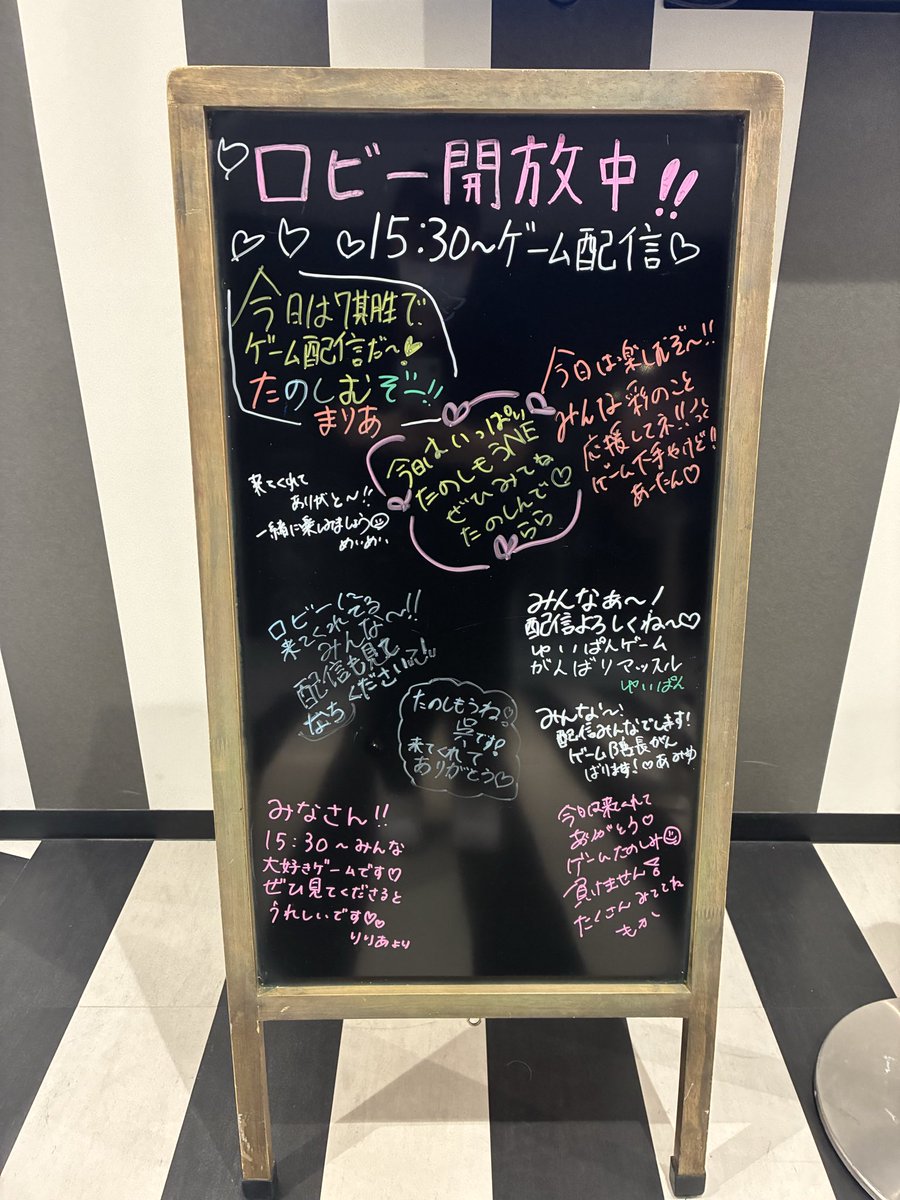 ♡ロビー開放中!!
♡♡ ♡15:30〜ゲーム配信♡
今日は7期生で
ゲーム配信だ〜♥
たのしむぞー!!
まりあ
今日は楽しむぞ〜!!
みんな彩のこと
応援してネ!!
ゲーム下手やけど!
あーたん♡
今日はいっぱい
たのしもうNE
ぜひみてね
たのしんで♡
らら
来てくれて
ありがと〜!!
一緒に楽しみましょう☺
めいめい
ロビーに
来てくれてる
みんな〜!!
配信も見て
くださいっ!
なち
みんなぁ〜!
配信よろしくね〜♡
ゆいぱんゲーム
がんばりマッスル
ゆいぱん
たのしもうね♡
呉です!
来てくれて
ありがとう♡
みんな〜!
配信みんなでします!
ゲーム隊長がん
ばります!♡あみゆ
みなさん!!
15:30〜みんな
大好きゲームです♡
ぜひ見てくださると
うれしいです♡♡
りりあより
今日は来てくれて
ありがとう♡
ゲームたのしみ☺
負けません
たくさんみててね